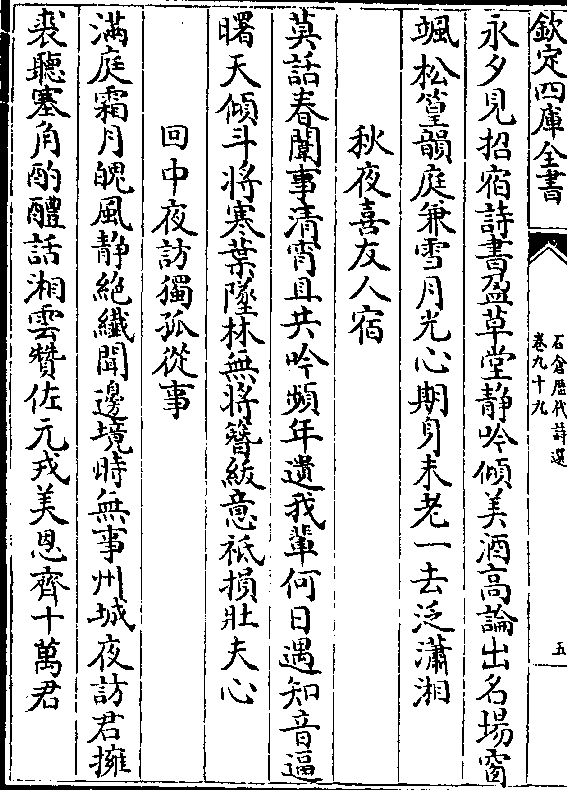 欽定四庫全書
石倉歴代詩選
卷九十九
五
永夕見招宿詩書盈草堂静吟傾美酒高論出名場窗
颯松篁韻庭兼雪月光心期身未老一去泛瀟湘
秋夜喜友人宿
莫話春闈事清宵且共吟頻年遺我輩何日遇知音逼
曙天傾斗將寒葉墜林無將簪紱意祗損壯夫心
回中夜訪獨孤從事
滿庭霜月魄風静絶纎聞邊境時無事州城夜訪君擁
裘聽塞角酌醴話湘雲贊佐元戎美恩齊十萬君